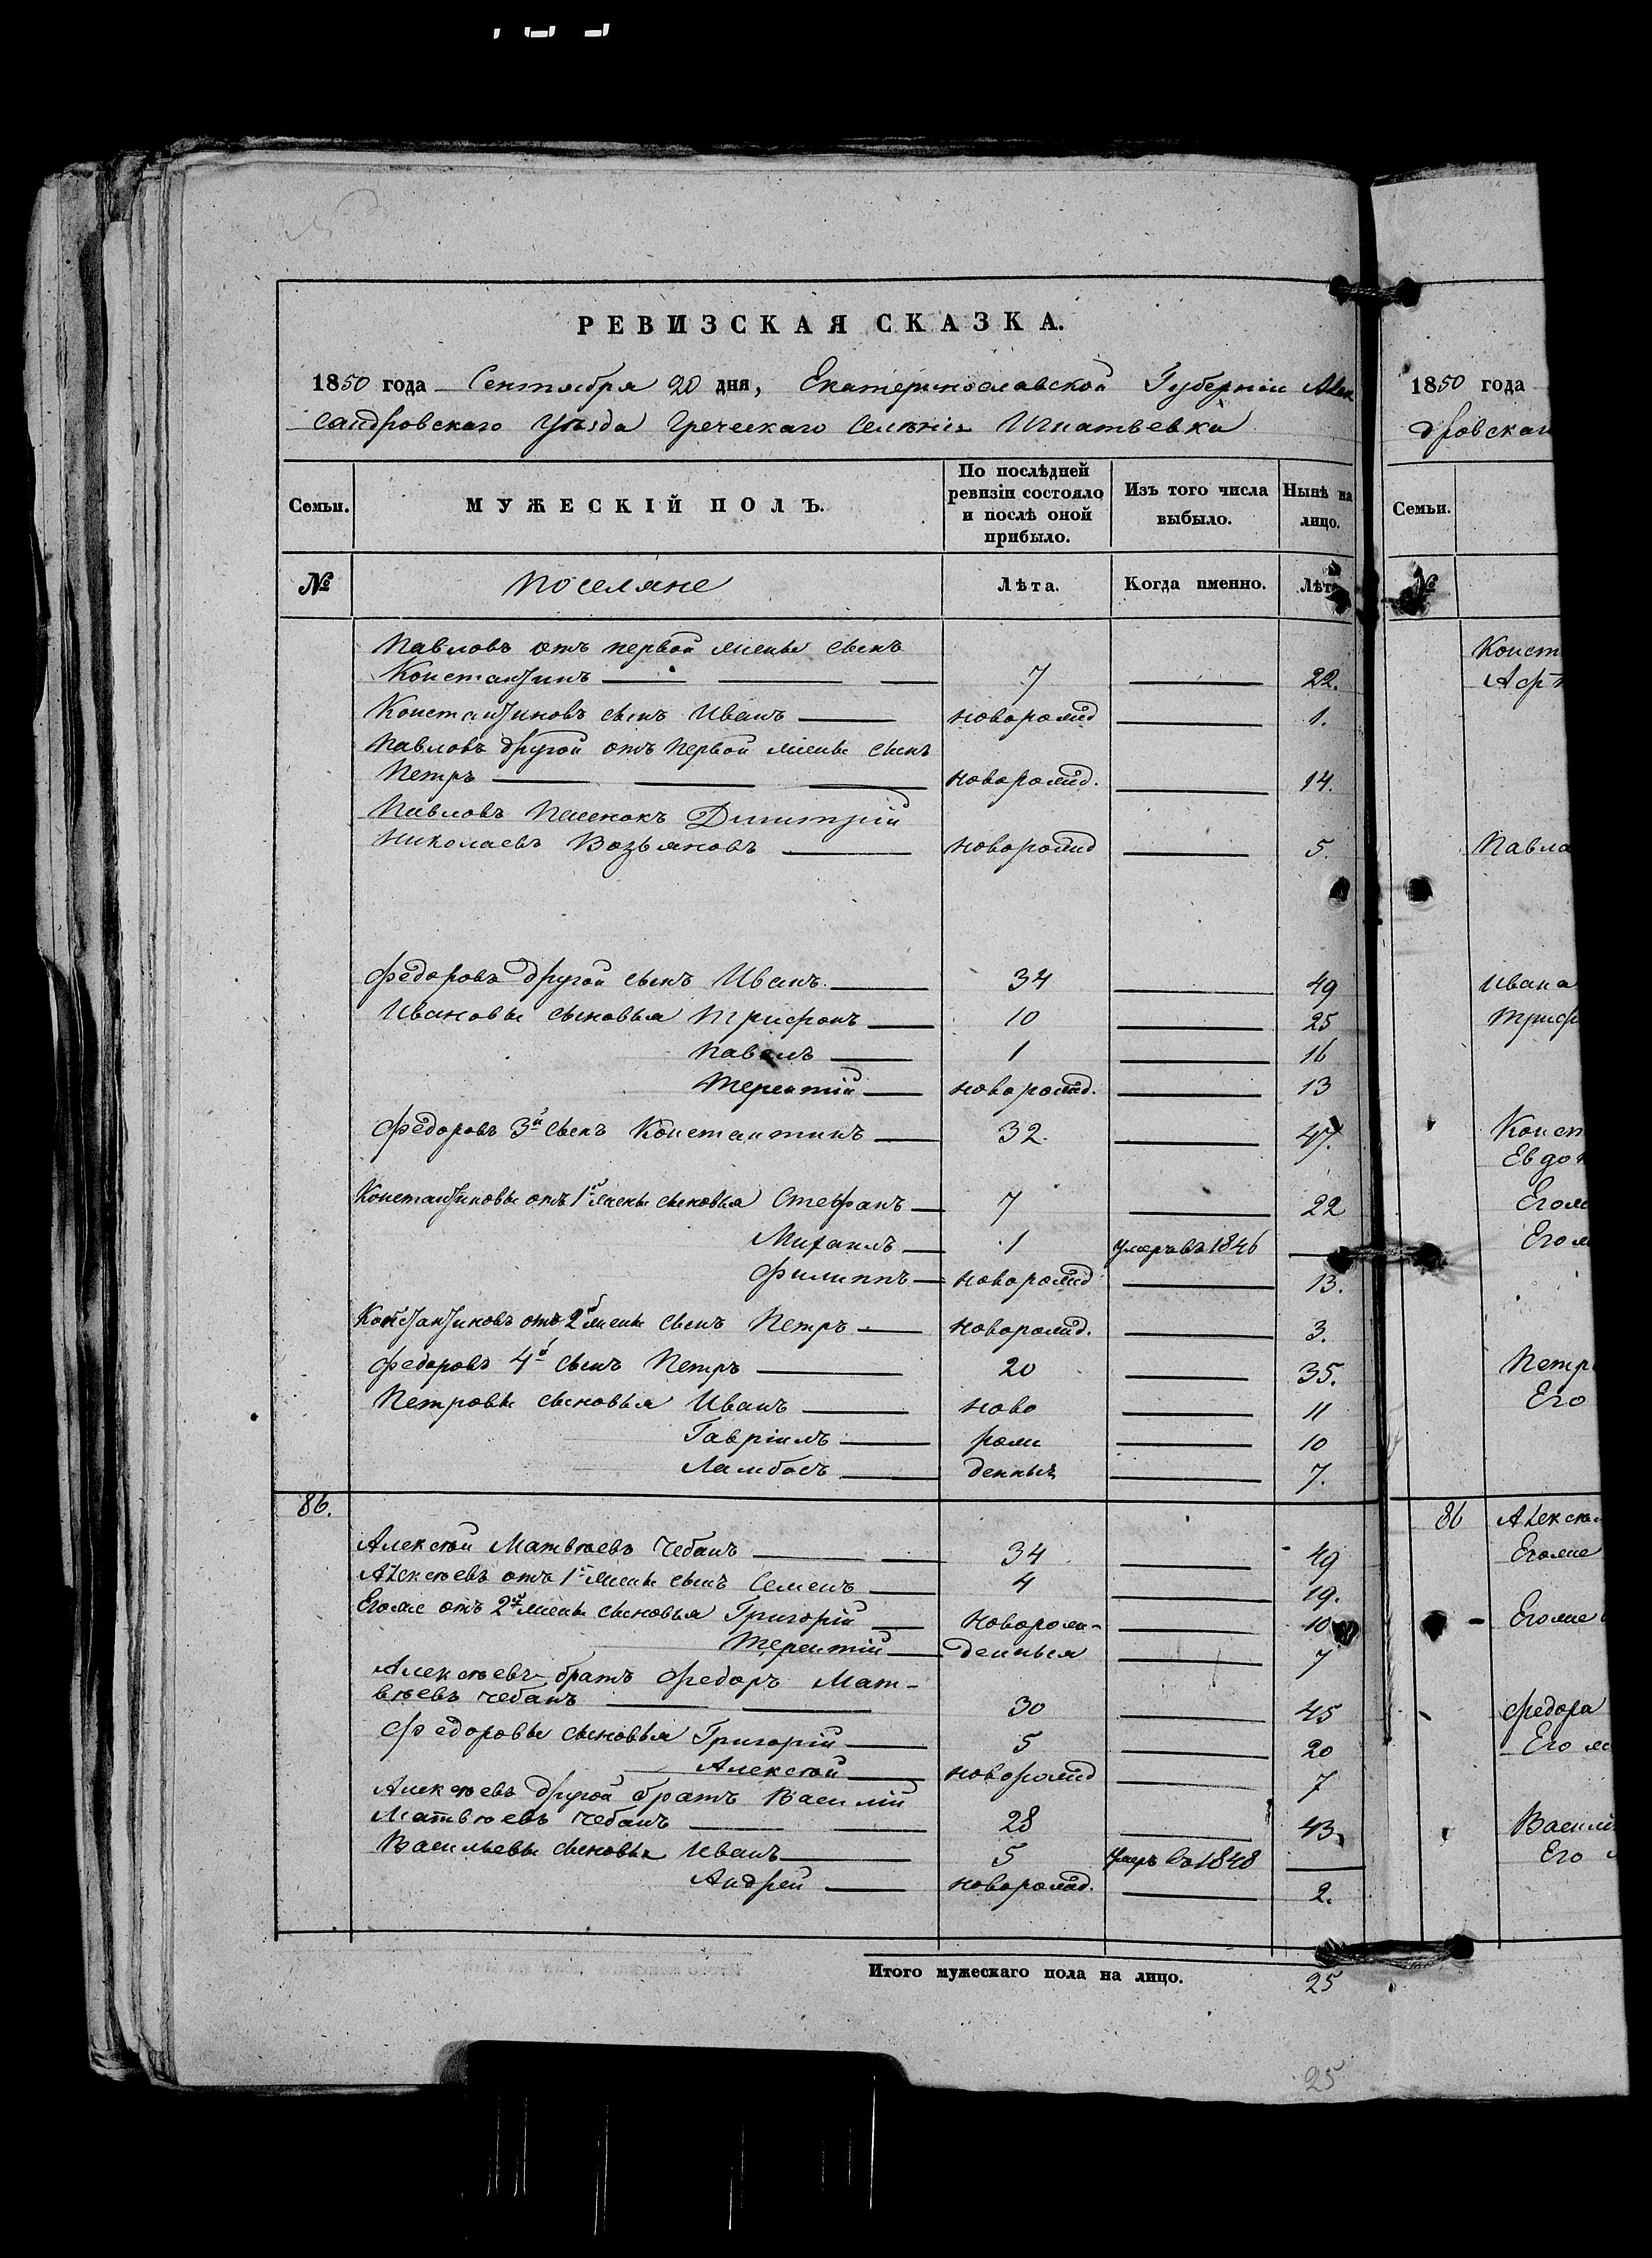 РЕВИЗСКАЯ СКАЗКА.
1850 года Сентября 20 дня, Екатеринославской Губерніи Алек
сандровскаго Уѣзда Греческаго Селенія Игнатьевки
Семьи.
МУЖЕСКІЙ ПОЛЪ.
По послѣдней ревизіи состояло и послѣ оной прибыло.
Изъ того числа выбыло.
Нынѣ на лицо.
№ Поселяне Лѣта. Когда именно. Лѣта
Павловъ отъ первой жены сынъ
Константинъ 7 22.
Константиновъ сынъ Иванъ новорожд 1.
Павловъ другой отъ первой жены сынъ
Петръ новорожд. 14.
Павловъ Дмитрій
Николаевъ новорожд 5.
Федоровъ другой сынъ Иванъ 34 49
Ивановы сыновья Трифонъ 10 25
Павелъ 1 16
Терентій новорожд. 13
Федоровъ 3й сынъ Константинъ 32. 47.
Константиновы отъ 1й жены сыновья Стефанъ 7 22
Михаилъ 1 умеръ въ 1846
Филиппъ новорожд 13.
Константиновъ отъ 2й жены сынъ Петръ новорожд. 3.
Федоровъ 4й сынъ Петръ 20 35.
Петровы сыновья Иванъ ново 11
Гавріилъ рож 10
Ламбосъ денныя 7.
86.
Алексѣй Матвѣевъ Чебанъ 34 49
Алексѣевъ отъ 1й жены сынъ Семенъ 4 19.
Егоже отъ 2й жены сыновья Григорій Новорож- 10
Терентій денныя 7
Алексѣевъ братъ Федоръ Мат-
вѣевъ Чебанъ 30 45
Федоровы сыновья Григорій 5 20
Алексѣй новорожд 7
Алексѣевъ другой братъ Василій
Матвѣевъ Чебанъ 28 43
Васильевы сыновья Иванъ 5 умеръ въ 1848
Андрей новорожд. 2.
Итого мужескаго пола на лицо. 25
25
1850 года
дровскаг
Семьи.
№
Конст
Павла
Ивана
Триф
Конст
Евдо
Егож
Егож
Петр
Его
86 Алексѣ
Егоже
Егоже
Федора
Его ж
Васил
Его